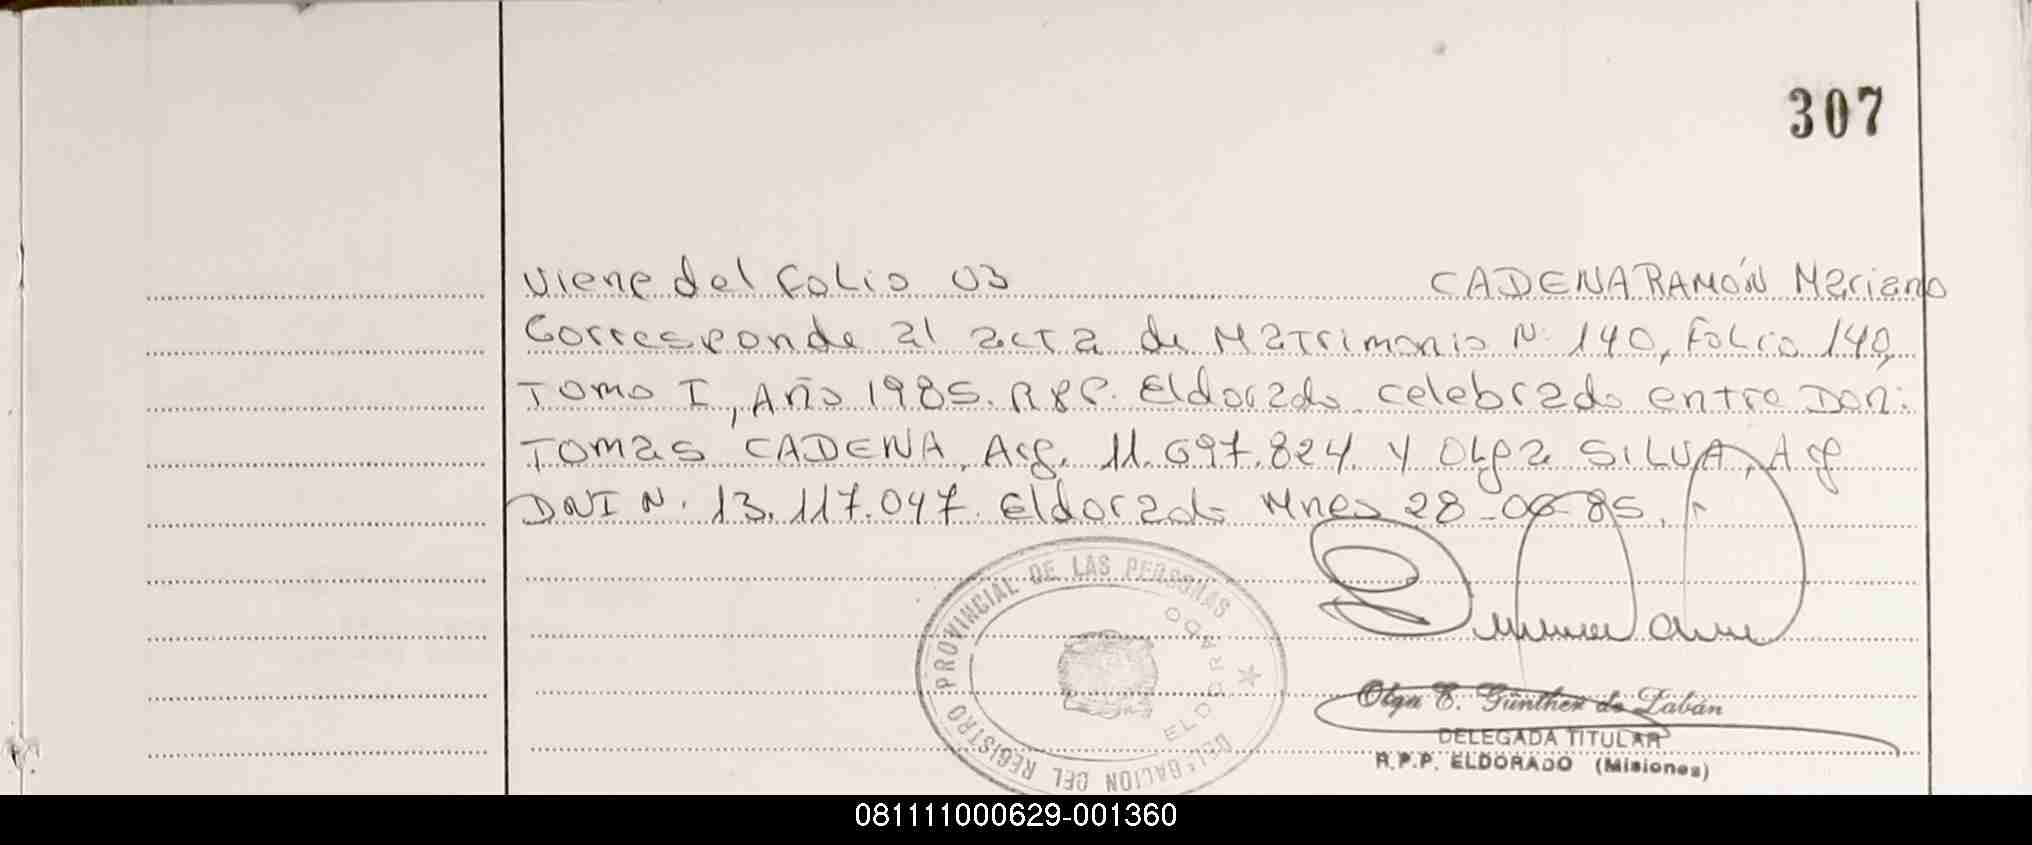 307
Viene del Folio 03 CADENA RAMÓN Mariano
Corresponde al acta de Matrimonio N. 140, Folio 140,
Tomo I, Año 1985. R.P.P. Eldorado celebrado entre Don:
Tomas CADENA, Arg. 11.697.824 y Olga SILVA, Arg
DNI N. 13.117.047. Eldorado Mnes 28-06-85.
DELEGACION DEL REGISTRO PROVINCIAL DE LAS PERSONAS
ELDORADO
Olga E. Günther de Zabán
DELEGADA TITULAR
R.P.P. ELDORADO (Misiones)
081111000629-001360